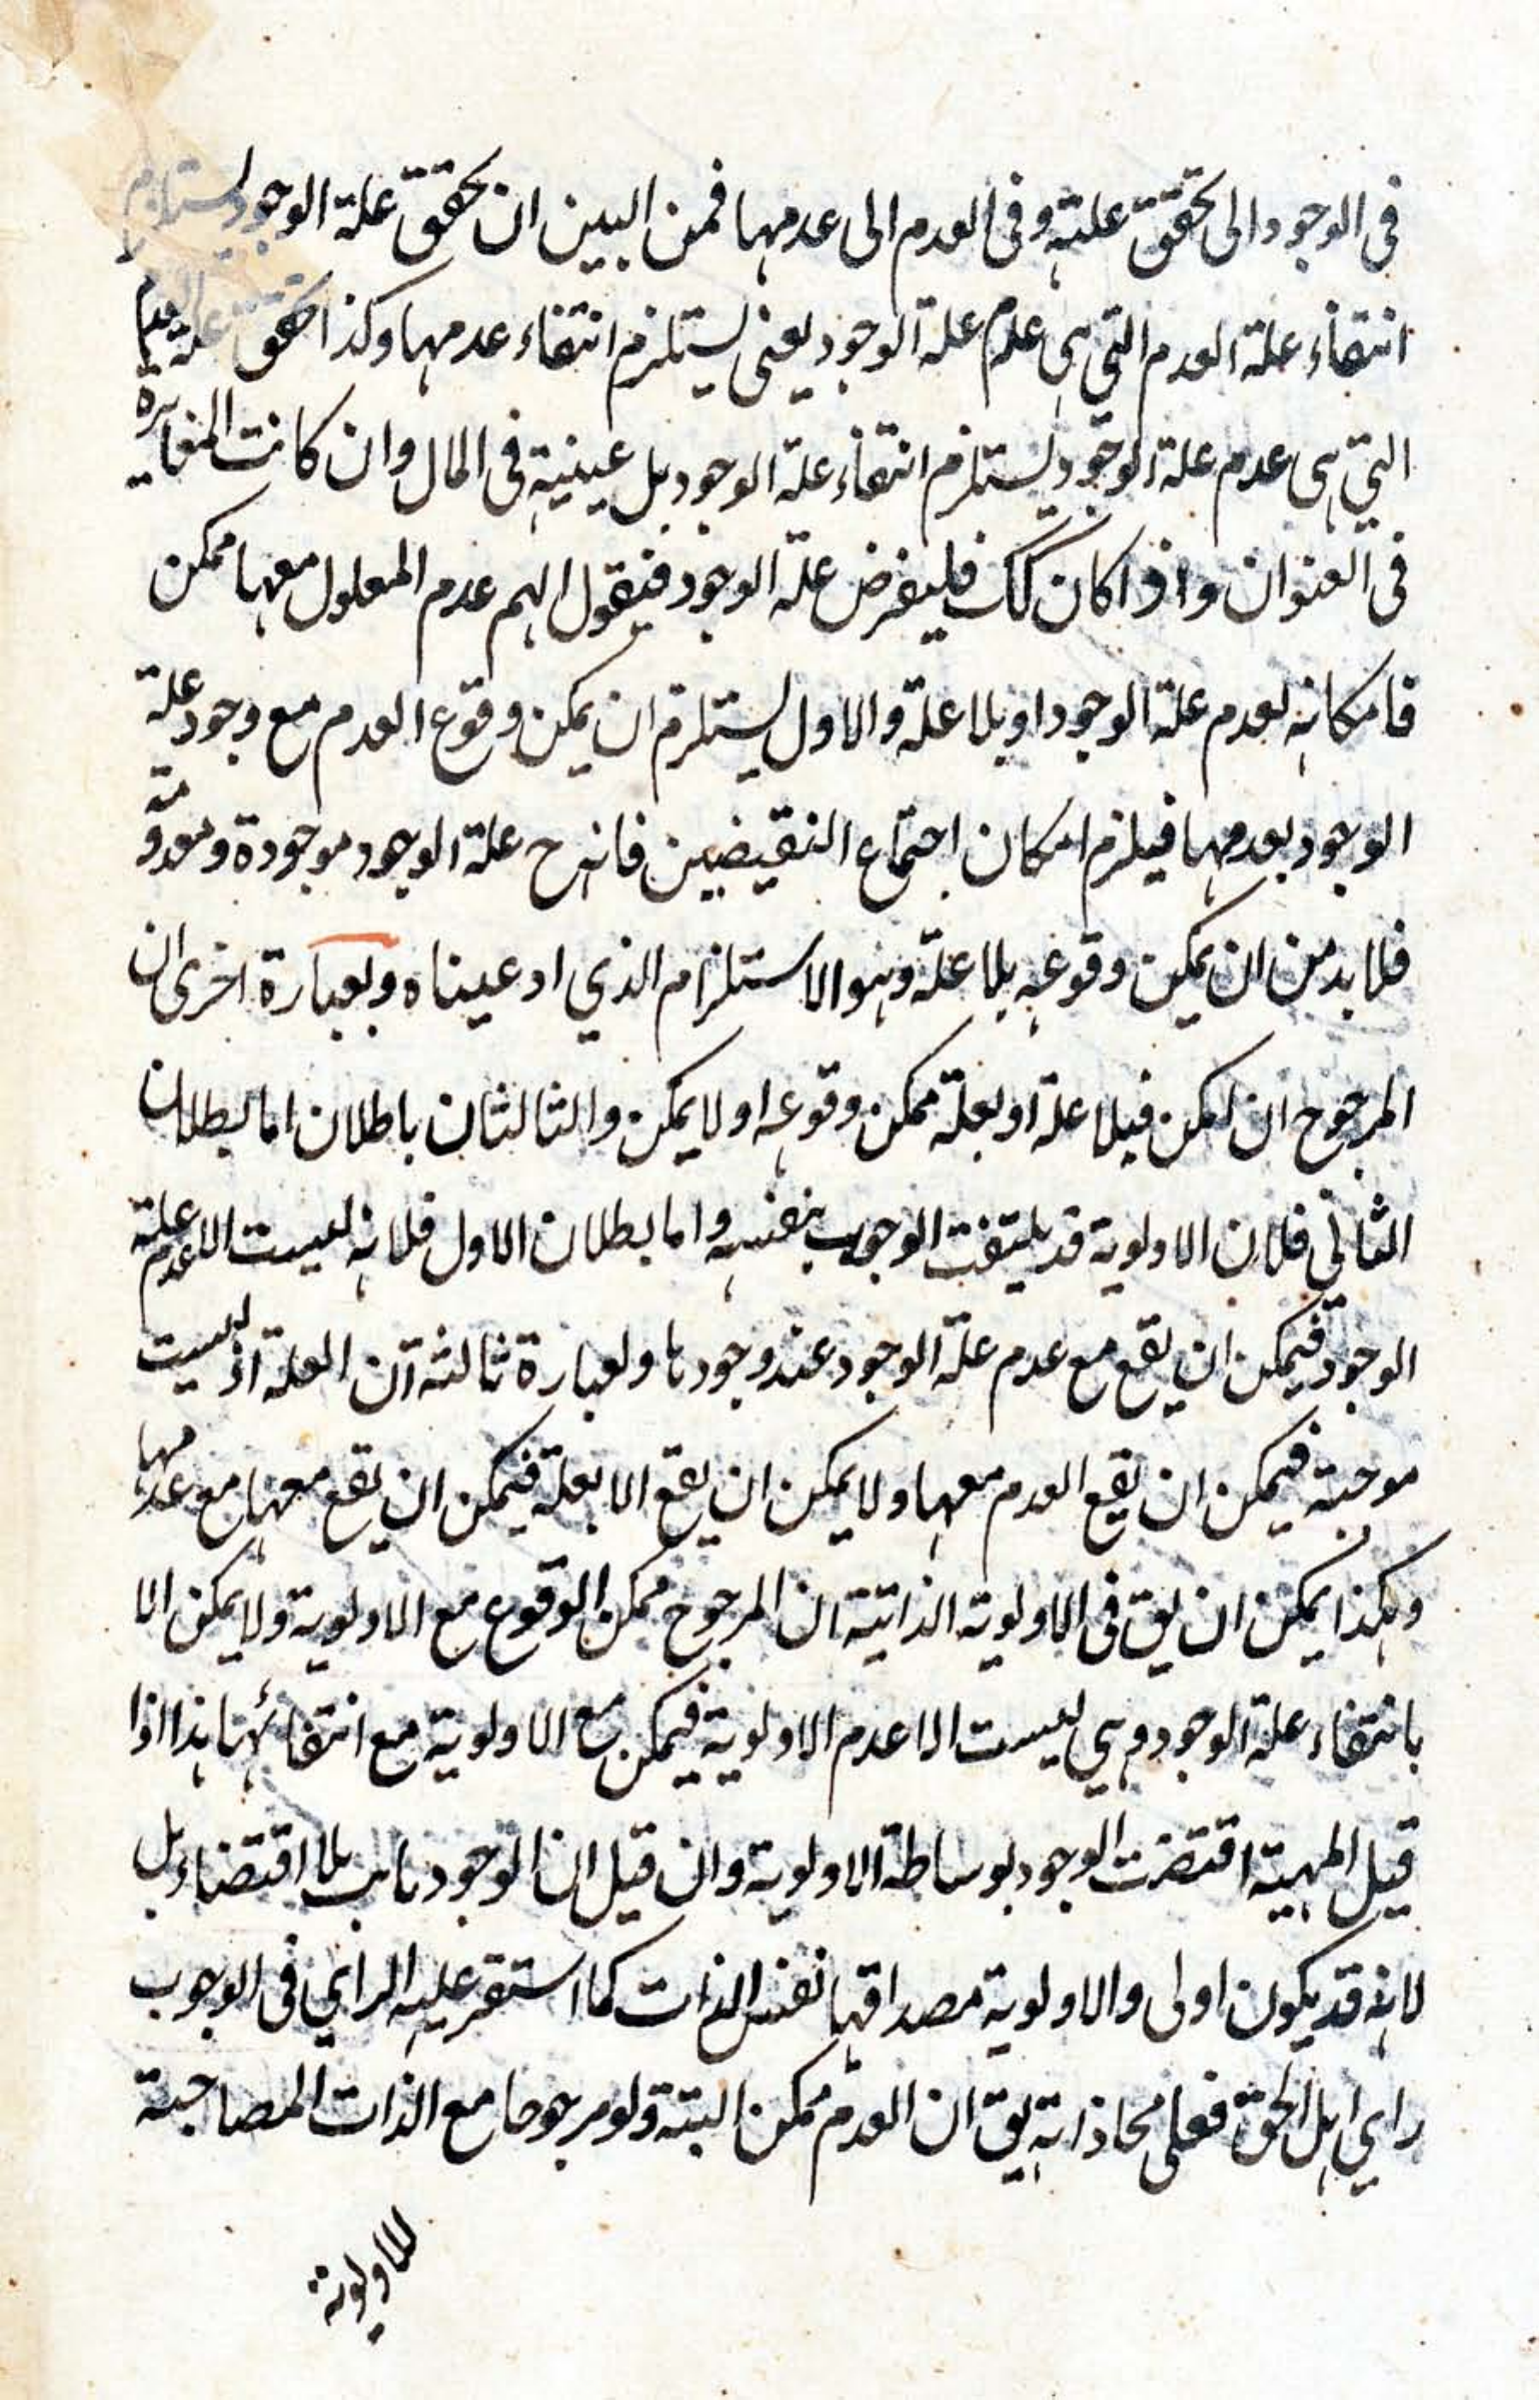 فى الوجود الى تحقق علته وفى العدم الى عدمها فمن البين ان تحقق علة الوجود يستلزم
انتفاء علة العدم التى هى عدم علة الوجود يعنى يستلزم انتفاء عدمها وكذا تحقق علة العدم
التى هى عدم علة الوجود يستلزم انتفاء علة الوجود بل عينية فى المال وان كانت المغايرة
فى العنوان واذا كان كك فليفرض علة الوجود فنقول الهم عدم المعلول معها ممكن
فامكانه لعدم علة الوجود او بلا علة والاول يستلزم ان يمكن وقوع العدم مع وجود علة
الوجود بعدمها فيلزم امكان اجتماع النقيضين فانه ح علة الوجود موجودة ومعدومة
فلا بد من ان يمكن وقوعه بلا علة وهو الاستلزام الذي ادعيناه وبعبارة اخرى ان
المرجوح ان امكن فبلا علة او بعلة ممكن وقوعه او لا يمكن والتالثان باطلان اما بطلان
الثانى فلان الاولوية قد يلتفت الوجوب بنفسه واما بطلان الاول فلانه ليست الا عدم علة
الوجود فيمكن ان يقع مع عدم علة الوجود عند وجودها ولعبارة ثالثة ان العلة اذ ليست
موجبة فيمكن ان يقع العدم معها ولا يمكن ان يقع الا بعلة فيمكن ان يقع معها مع عدمها
وهكذا يمكن ان يق فى الاولوية الذاتية ان المرجوح ممكن الوقوع مع الاولوية ولا يمكن الا
بانتفاء علة الوجود وهى ليست الا عدم الاولوية فيمكن مع الاولوية مع انتفائها هذا اذا
قيل المهية اقتضت الوجود بوساطة الاولوية وان قيل ان الوجود ثابت بلا اقتضاء بل
لانه قد يكون اولى والاولوية مصداقها نفس الذات كما استقر عليه الراي فى الوجوب
راي اهل الحق فعلى محاذاته يق ان العدم ممكن البتة ولو مرجوحا مع الذات المصاحبة
للاولوية